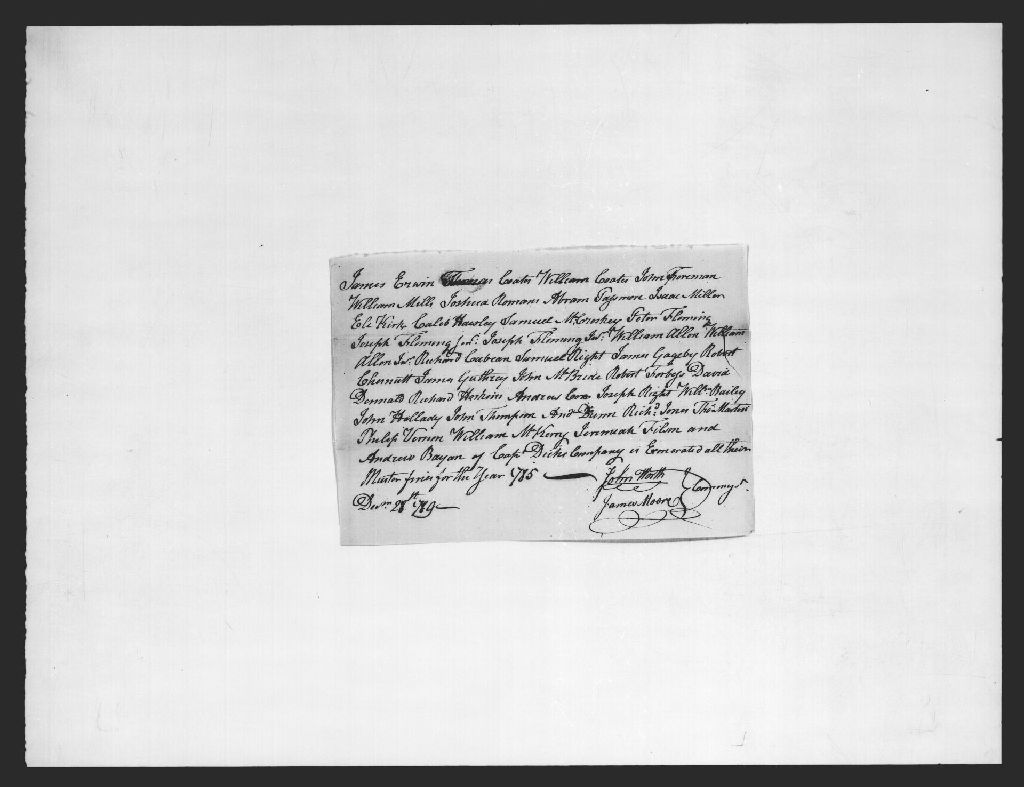 James Erwin Thomas Coats William Coates John Foreman
William Mills Joshua Romans Abram Passmore Isaac Miller
Eli Kirk Caleb Hawley Samuel McCroskey Peter Fleming
Joseph Fleming senr. Joseph Fleming Junr. William Allen William
Allen Junr. Richard Cabean Samuel Right James Gageby Robert
Chennett James Guthrey John McBride Robert Forbess David
Dennald Richard Hoskins Andrew Cox Joseph Right Willm. Bailey
John Hollady John Thompson And Dunn Richd. Jones Thos. Martin
Philip Vernon William McKerry Jeremiah Filson and
Andrew Bayan of Capt Dicks Company is Exnorated all their
Muster fines for the Year 1785
Decmr 28th 1789 John Worth
James Moore Commrs.